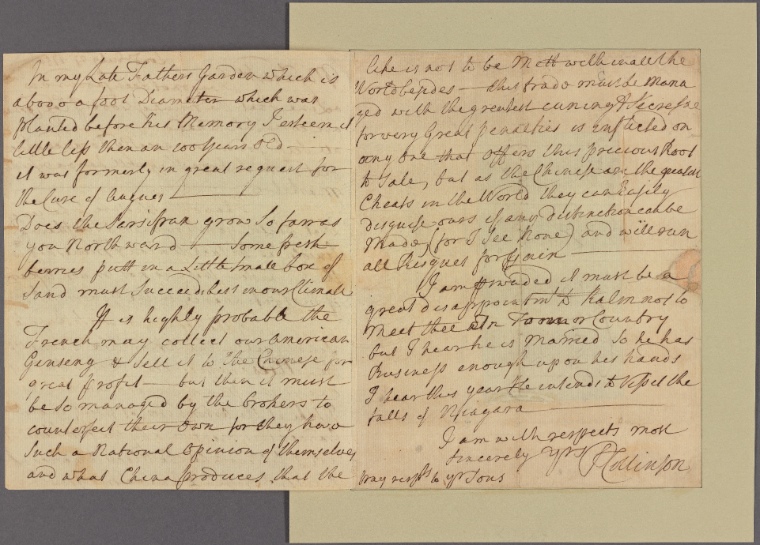 In my Late Fathers Garden which is
above a foot Diameter which was
planted before his Memory I esteem it
little less then an 100 years old —
it was formerly in great request for
the Cure of Agues —
Does the Parsifran grow so farr as
you Northward — Some fresh
berries putt in a Little box of
Sand must succeed best in our Climate
It is highly probable the
French may collect our American
Ginseng & Sell it to the Chinese for
great profit — but then it must
be so managed by the brokers to
counterfect their own for they have
such a National Opinion of themselves
and what China produces that the
like is not to be Mett with in all the
World besides — this trade must be mana
ged with the greatest cuning &
for very Great penalties is inflicted on
any one that offers this precious Root
to Sale, but as the Chinese are the greatest
Cheats in the World they can Easily
disguise ours if any distinction can be
Made (for I See None) and will run
all Risques for Gain —
I am it must be a
great disappointmt to Kalm not to
meet thee In Town or Country
but I hear he is married so he has
Business enough upon his hands
I hear this year He intends to Visset the
falls of Niagara
I am with respects most
Sincerely yrs P Collinson
my respts to yr Sons